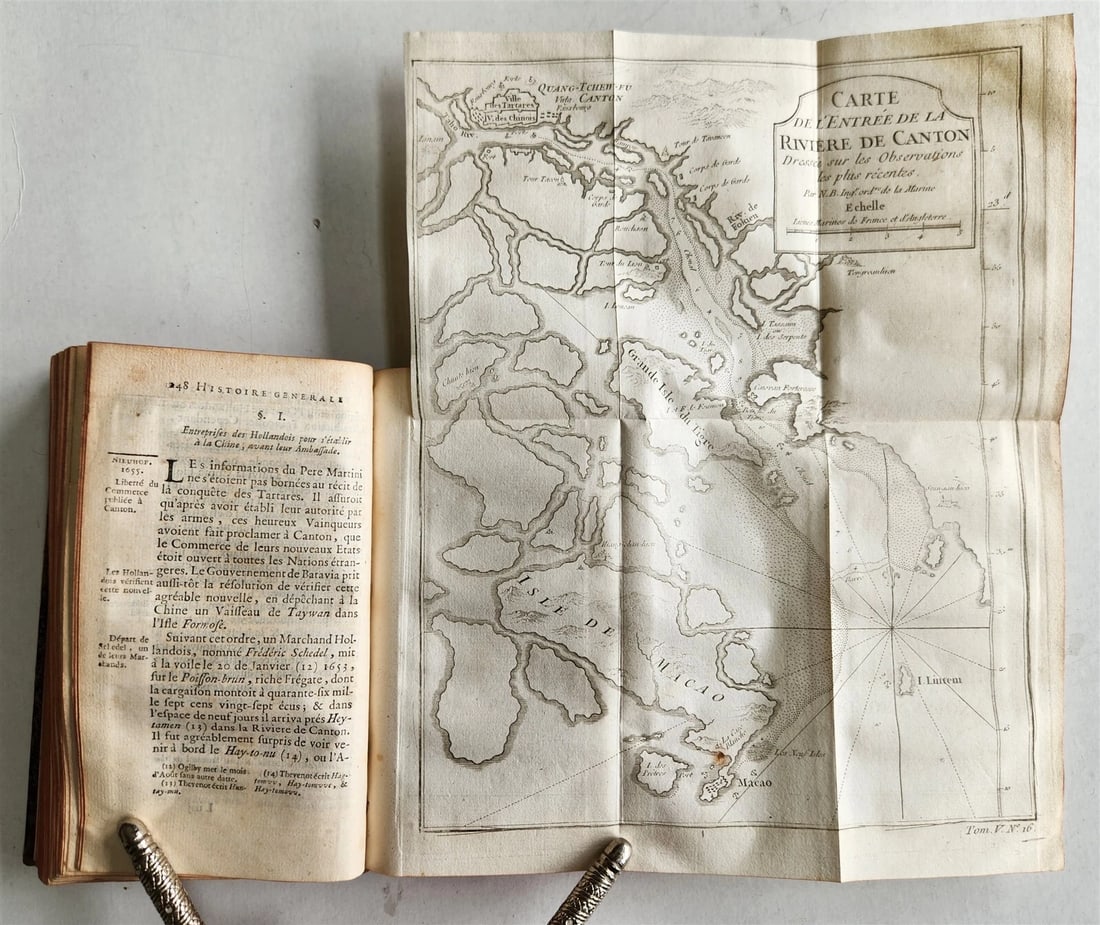 248 HISTOIRE GENERALE
§. I.
Entreprises des Hollandois pour s'établir
à la Chine, avant leur Ambassade.
NIEUHOF.
1655.
Liberté du
Commerce
publiée à
Canton.
LEs informations du Pere Martini
ne s'étoient pas bornées au récit de
la conquête des Tartares. Il assuroit
qu'après avoir établi leur autorité par
les armes, ces heureux Vainqueurs
avoient fait proclamer à Canton, que
le Commerce de leurs nouveaux Etats
étoit ouvert à toutes les Nations étran-
geres. Le Gouvernement de Batavia prit
aussi-tôt la résolution de vérifier cette
agréable nouvelle, en dépêchant à la
Chine un Vaisseau de Taywan dans
l'Isle Formose.
Les Hollan-
dois vérifient
cette nouvel-
le.
Suivant cet ordre, un Marchand Hol-
landois, nommé Frédéric Schedel, mit
à la voile le 20 de Janvier (12) 1653,
sur le Poisson-brun, riche Frégate, dont
la cargaison montoit à quarante-six mil-
le sept cens vingt-sept écus; & dans
l'espace de neuf jours il arriva près Hey-
tamen (13) dans la Riviere de Canton.
Il fut agréablement surpris de voir ve-
nir à bord le Hay-to-nu (14), ou l'A-
Départ de
Schedel, un
de leurs Mar-
chands.
(12) Ogilby met le mois
d'Août sans autre datte.
(13) Thevenot écrit Hau-
tay-mu.
(14) Thevenot écrit Hay-
tonwu, Hay-tonvoe, &
Hay-tonwou.
CARTE
DE L'ENTRÉE DE LA
RIVIERE DE CANTON
Dressée sur les Observations
les plus récentes.
Par N. B. Ingr. ordre. de la Marine
Echelle
Lieues Marines de France et d'Angleterre
QUANG-TCHEW-FU
Ville CANTON
Fauxbourg
Ville
des Tartares
V. des Chinois
Tour de Tananeen
Corps de Garde
Corps de Garde
Tour Tacong
Corps de
Garde
Tour du Lion
I. Tansam
ou
I. des Serpents
Grande Isle du Tigre
Chanto hien
ISLE DE MACAO
I. Lintem
Les Neuf Isles
I. des
Prêtres
Port
Macao
Tom. V. N°. 16.